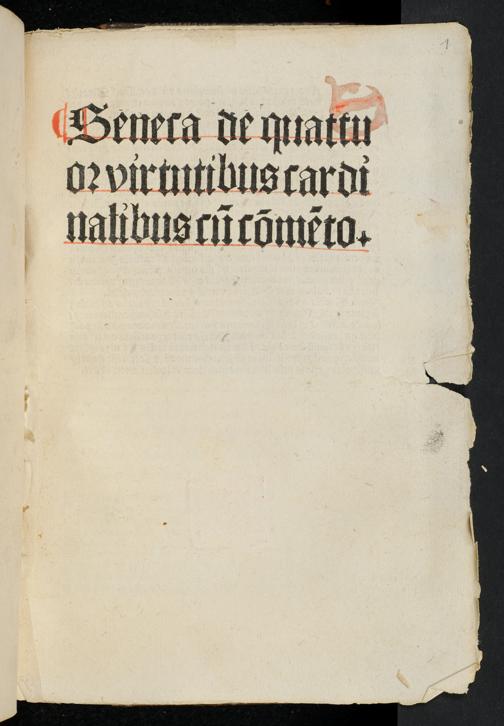 1
Seneca de quattu
or virtutibus cardi
nalibus cū cōmēto.